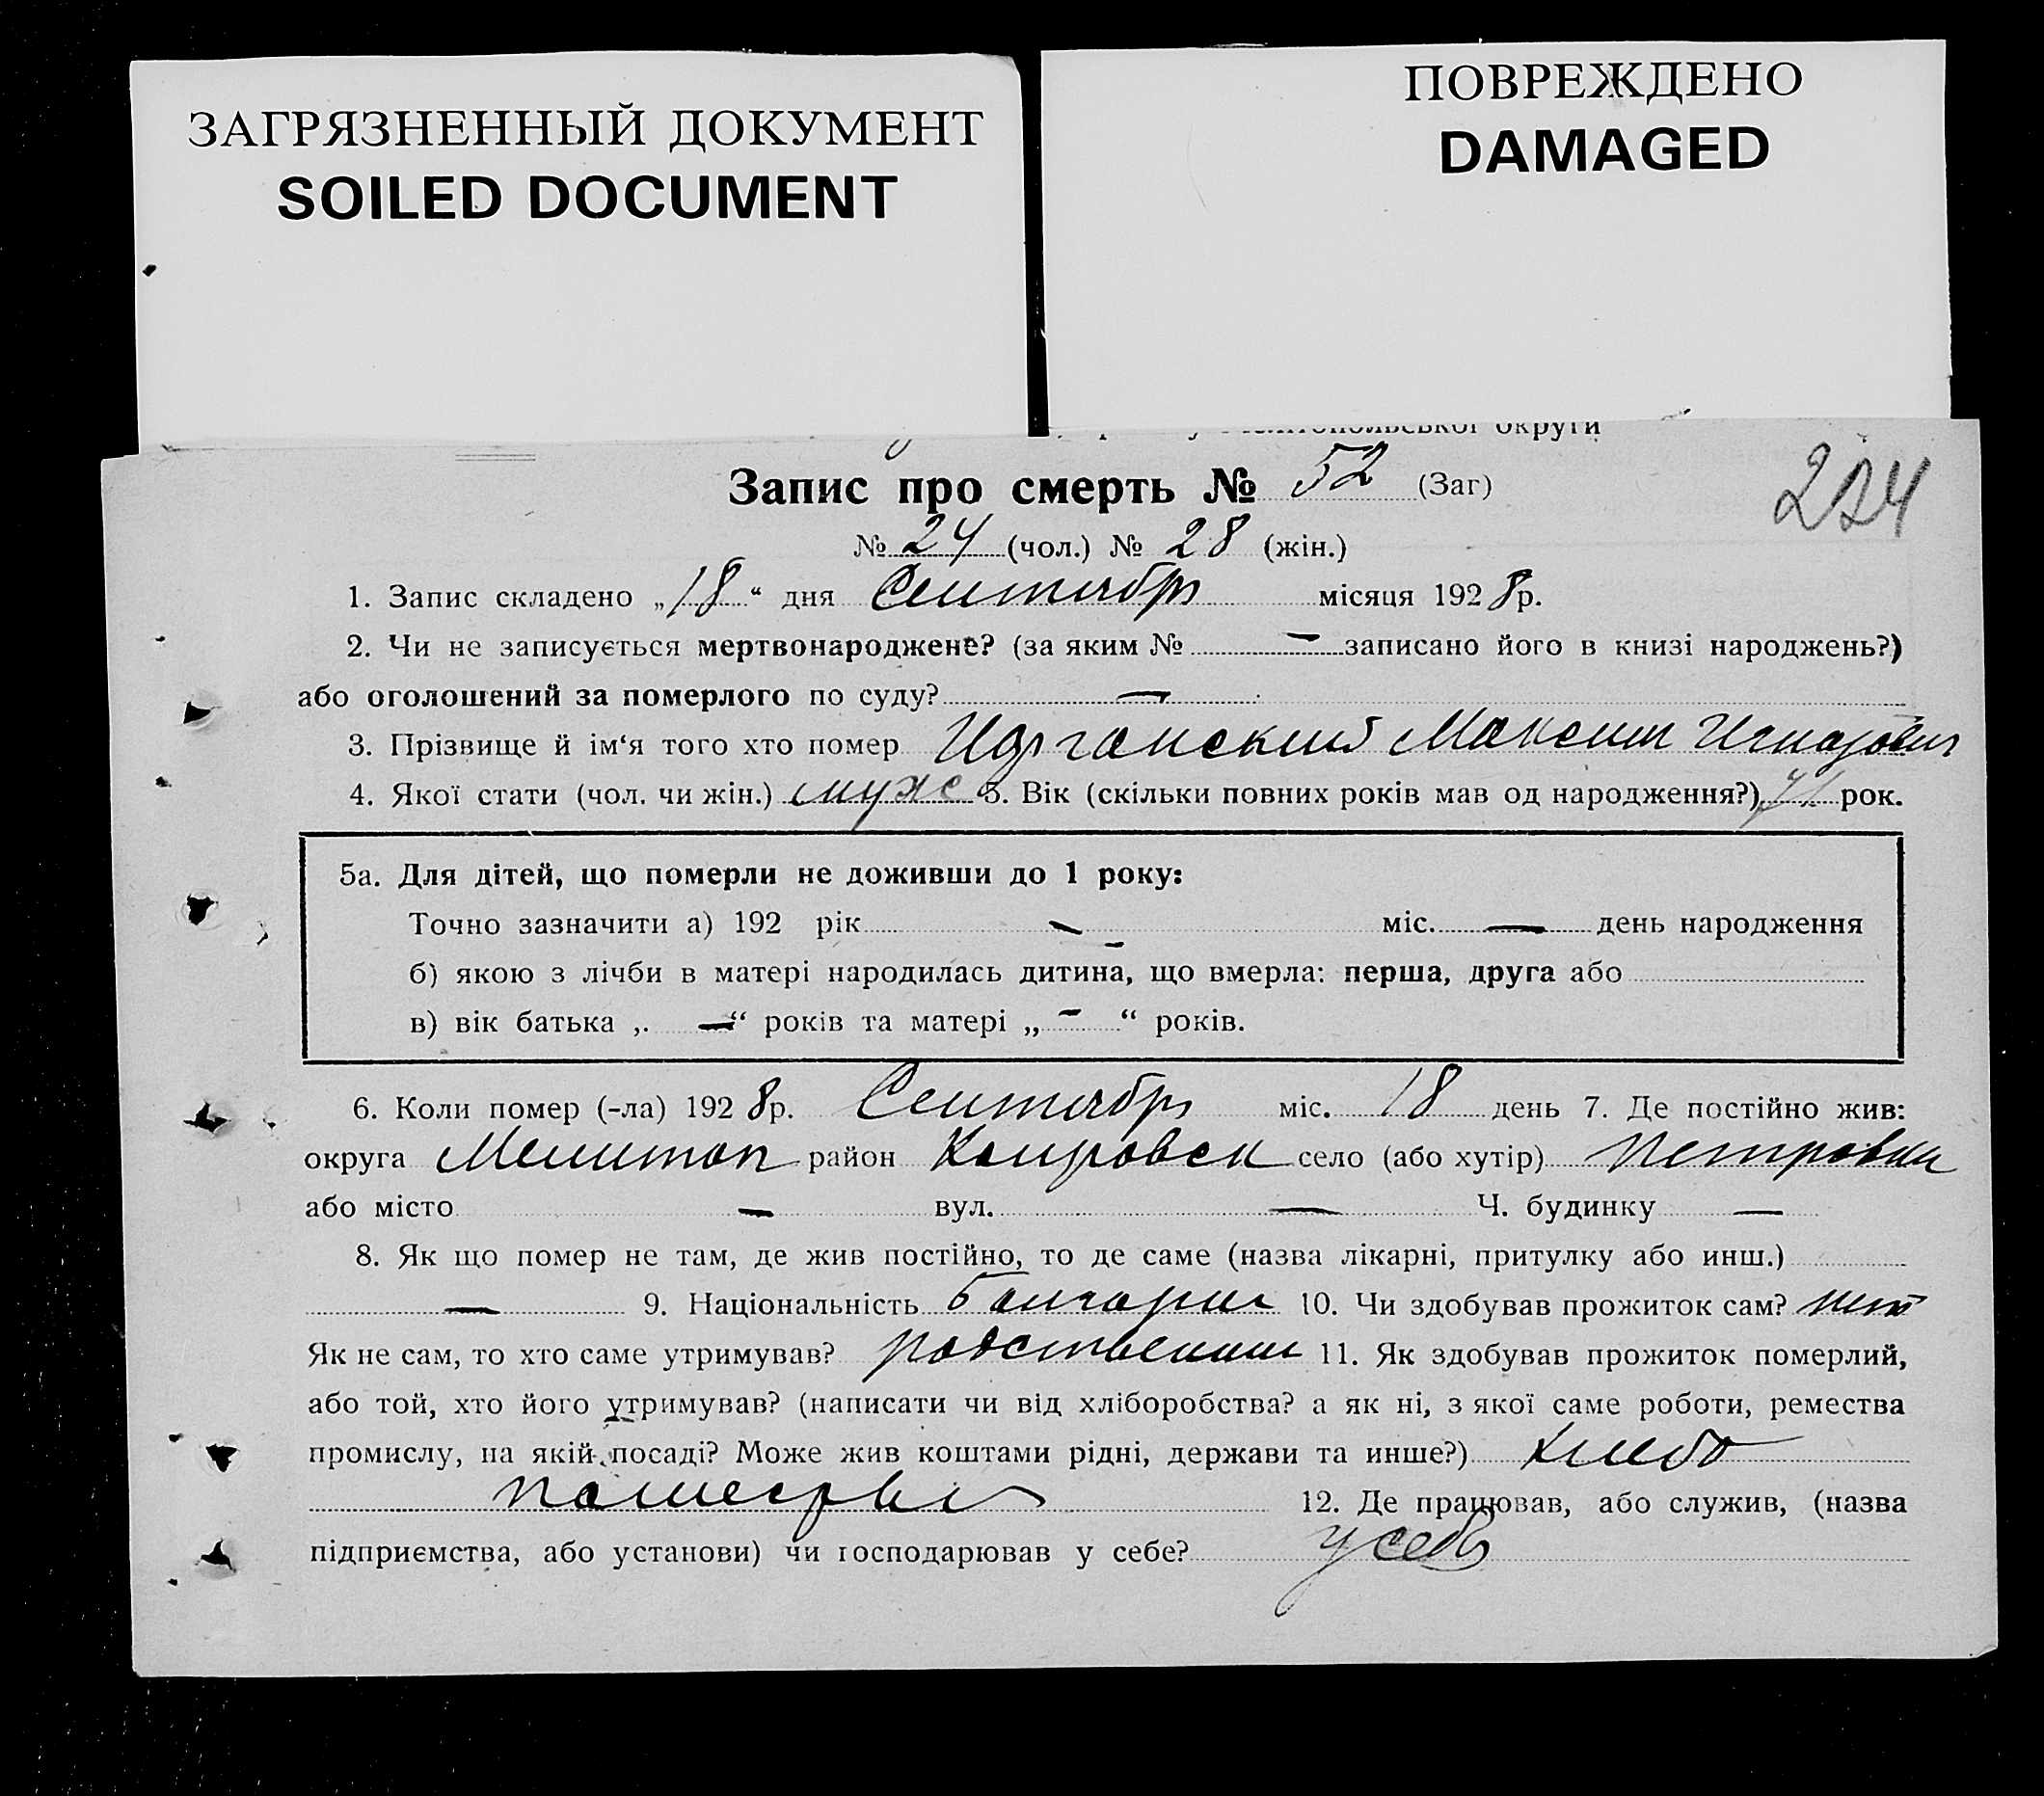 ЗАГРЯЗНЕННЫЙ ДОКУМЕНТ
SOILED DOCUMENT
ПОВРЕЖДЕНО
DAMAGED
округи
224
Запис про смерть № 52 (Заг)
№ 24 (чол.) № 28 (жін.)
1. Запис складено „18“ дня Сентябрь місяця 1928р.
2. Чи не записується мертвонароджене? (за яким № — записано його в книзі народжень?)
або оголошений за померлого по суду? —
3. Прізвище й ім‘я того хто помер Максим
4. Якої стати (чол. чи жін.) муж 5. Вік (скільки повних років мав од народження?) 71 рок.
5а. Для дітей, що померли не доживши до 1 року:
Точно зазначити а) 192 рік — міс. — день народження
б) якою з лічби в матері народилась дитина, що вмерла: перша, друга або —
в) вік батька „ — “ років та матері „ — “ років.
6. Коли помер (-ла) 1928р. Сентябрь міс. 18 день 7. Де постійно жив:
округа Мелитоп район село (або хутір) Петровка
або місто — вул. — Ч. будинку —
8. Як що помер не там, де жив постійно, то де саме (назва лікарні, притулку або инш.)
— 9. Національність 10. Чи здобував прожиток сам? нет
Як не сам, то хто саме утримував? родственики 11. Як здобував прожиток померлий,
або той, хто його утримував? (написати чи від хліборобства? а як ні, з якої саме роботи, ремества
промислу, на якій посаді? Може жив коштами рідні, держави та инше?) хлебо
пашеством 12. Де працював, або служив, (назва
підприємства, або установи) чи господарював у себе? у себя